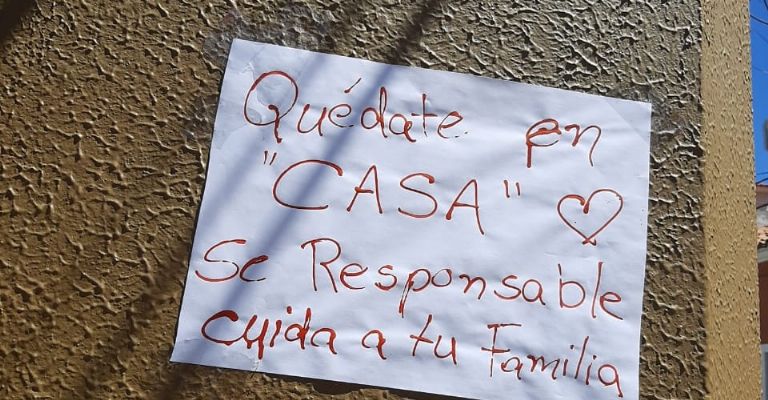 Quédate en
"CASA" ♡
Se Responsable
cuida a tu Familia